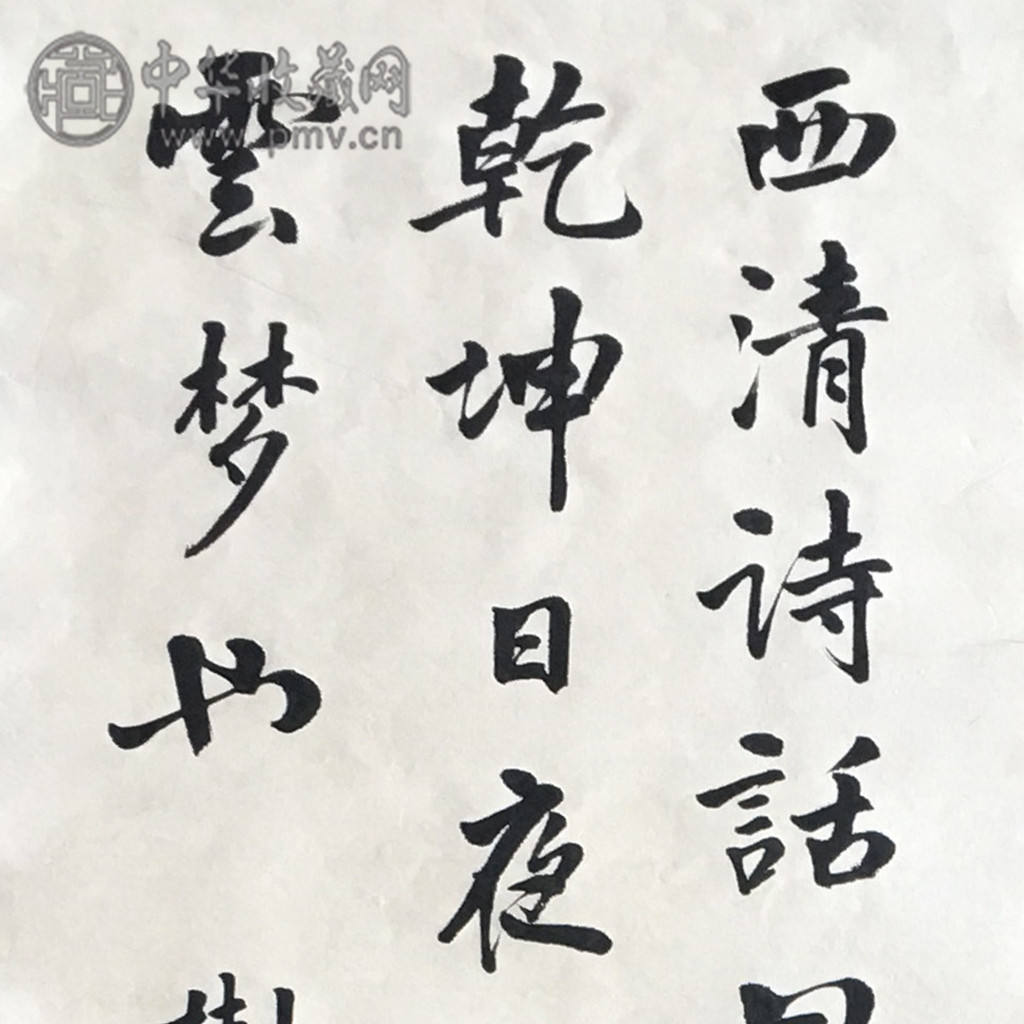 西清詩話
乾坤日夜
雲梦也
中华收藏网
www.pmv.cn